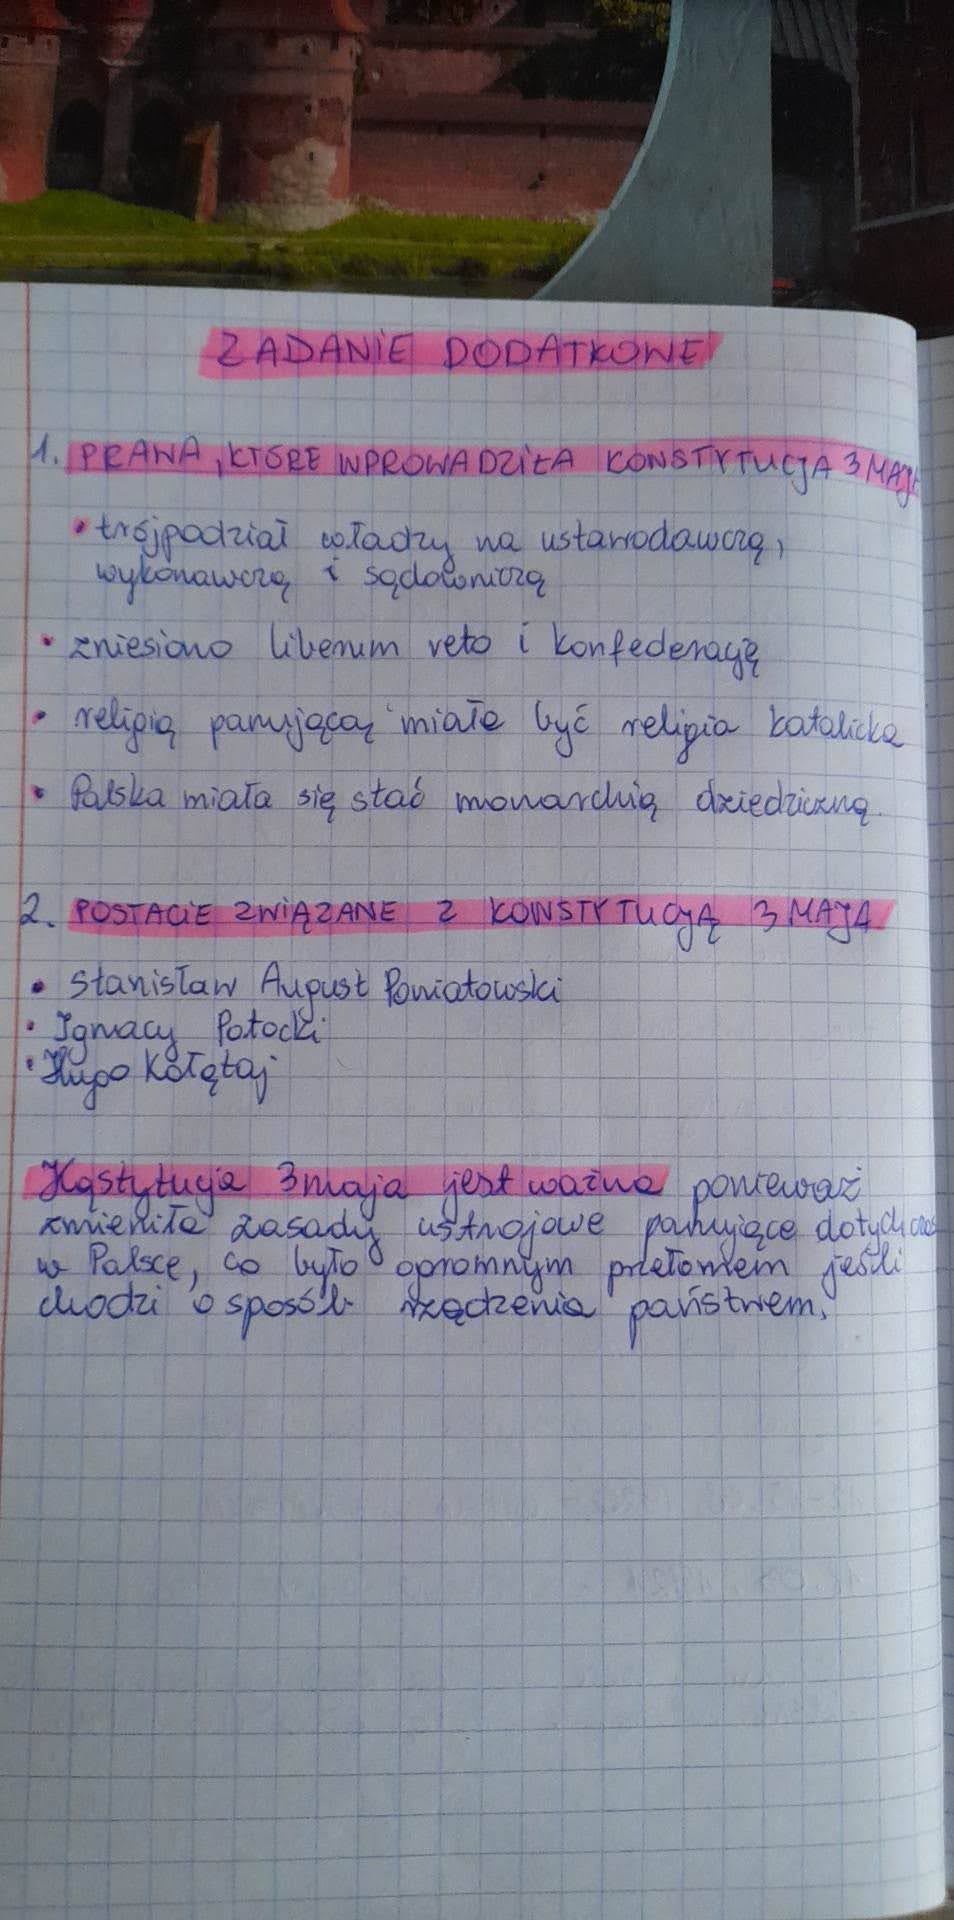 ZADANIE DODATKOWE
1. PRAWA, KTÓRE WPROWADZIŁA KONSTYTUCJA 3 MAJA
• trójpodział władzy na ustawodawczą,
wykonawczą i sądowniczą
• zniesiono liberum veto i konfederację
• religią panującą miała być religia katolicka
• Polska miała się stać monarchią dziedziczną.
2. POSTACIE ZWIĄZANE Z KONSTYTUCJĄ 3 MAJA
• Stanisław August Poniatowski
• Ignacy Potocki
• Hugo Kołątaj
Kąstytucja 3 maja jest ważna ponieważ
zmieniła zasady ustrojowe panujące dotychczas
w Polsce, co było ogromnym przełomem jeśli
chodzi o sposób rządzenia państwem.